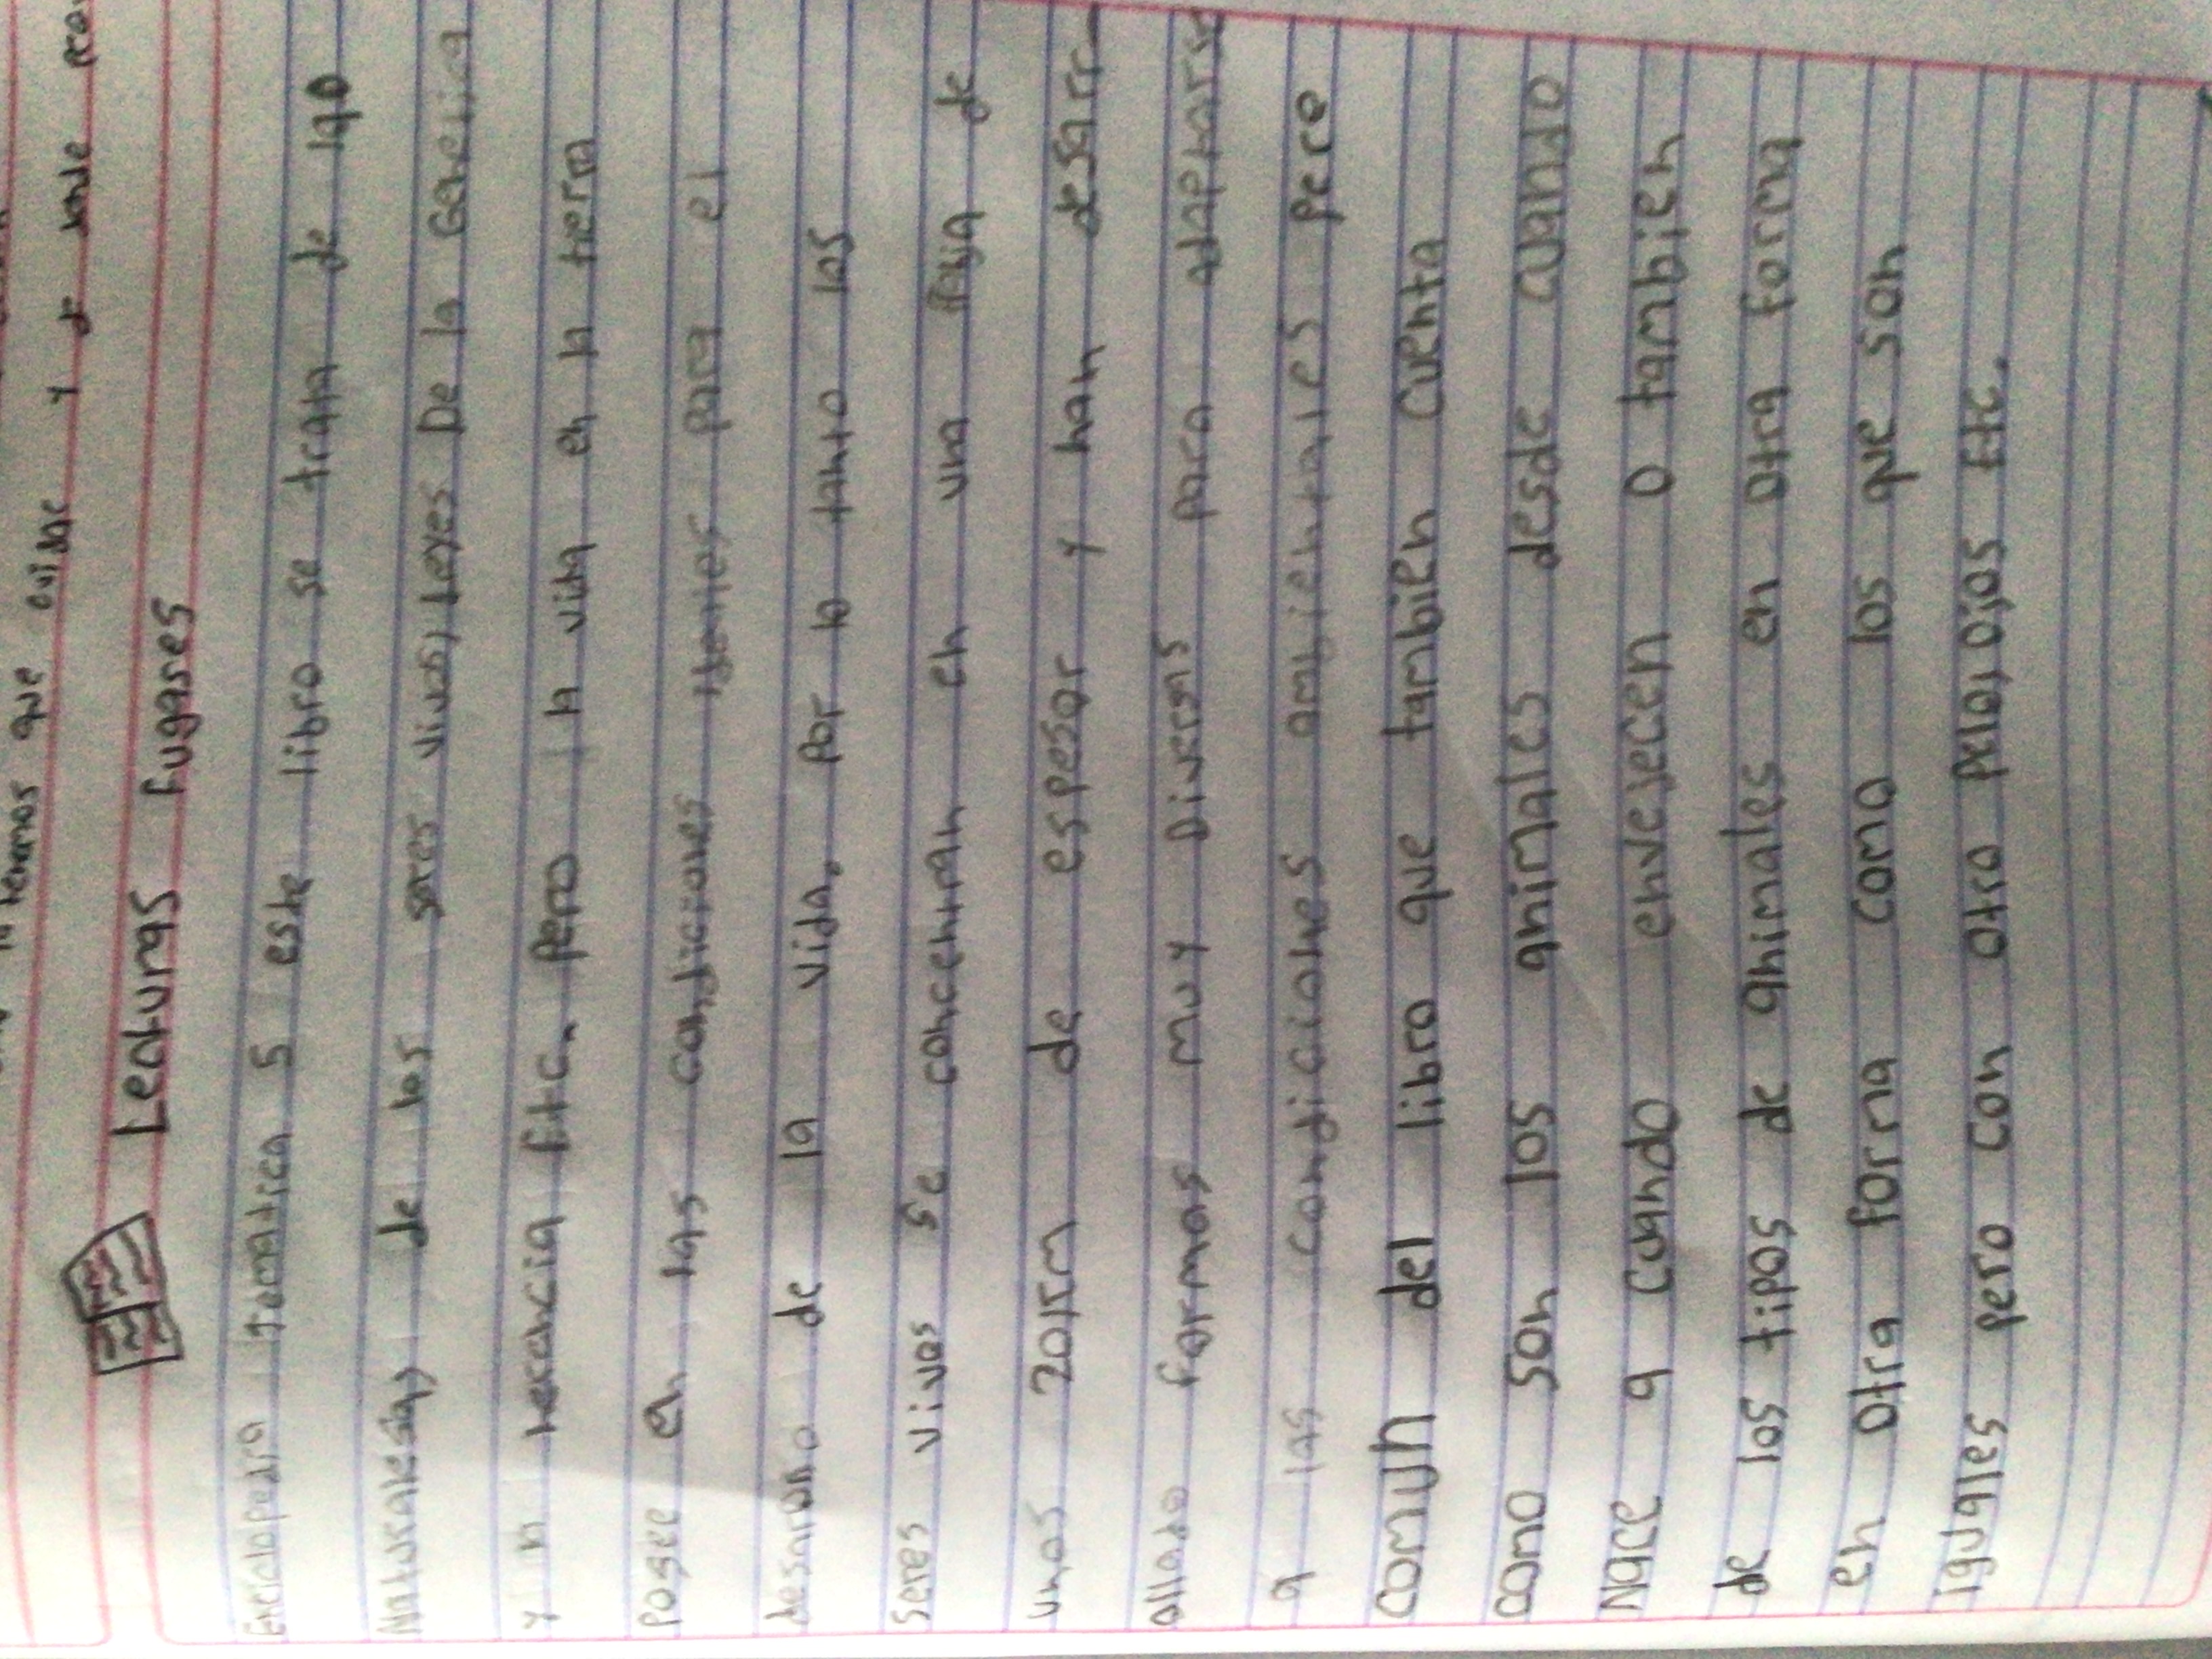 hemos que
ovidae y donde
Lecturas fugares
Enciclopedia tematica 5 este libro se trata de la
Naturalesa, de los seres vivos, Leyes De la Genetica
y la herencia Etc. Pero la vida en la tierra
Posee en las condiciones para el
desarollo de la vida. Por lo tanto los
Seres vivos se concentran en una de
unos 20km de espesor y han desarr-
ollado formas muy Diversas para adaptarse
a las condiciones ambientales pero
comun del libro que tambien cuenta
como son los animales desde cuando
Nace a cuando envejecen o tambien
de los tipos de animales en otra forma
en otra forma como los que son
iguales pero con otro pelo, ojos Etc.